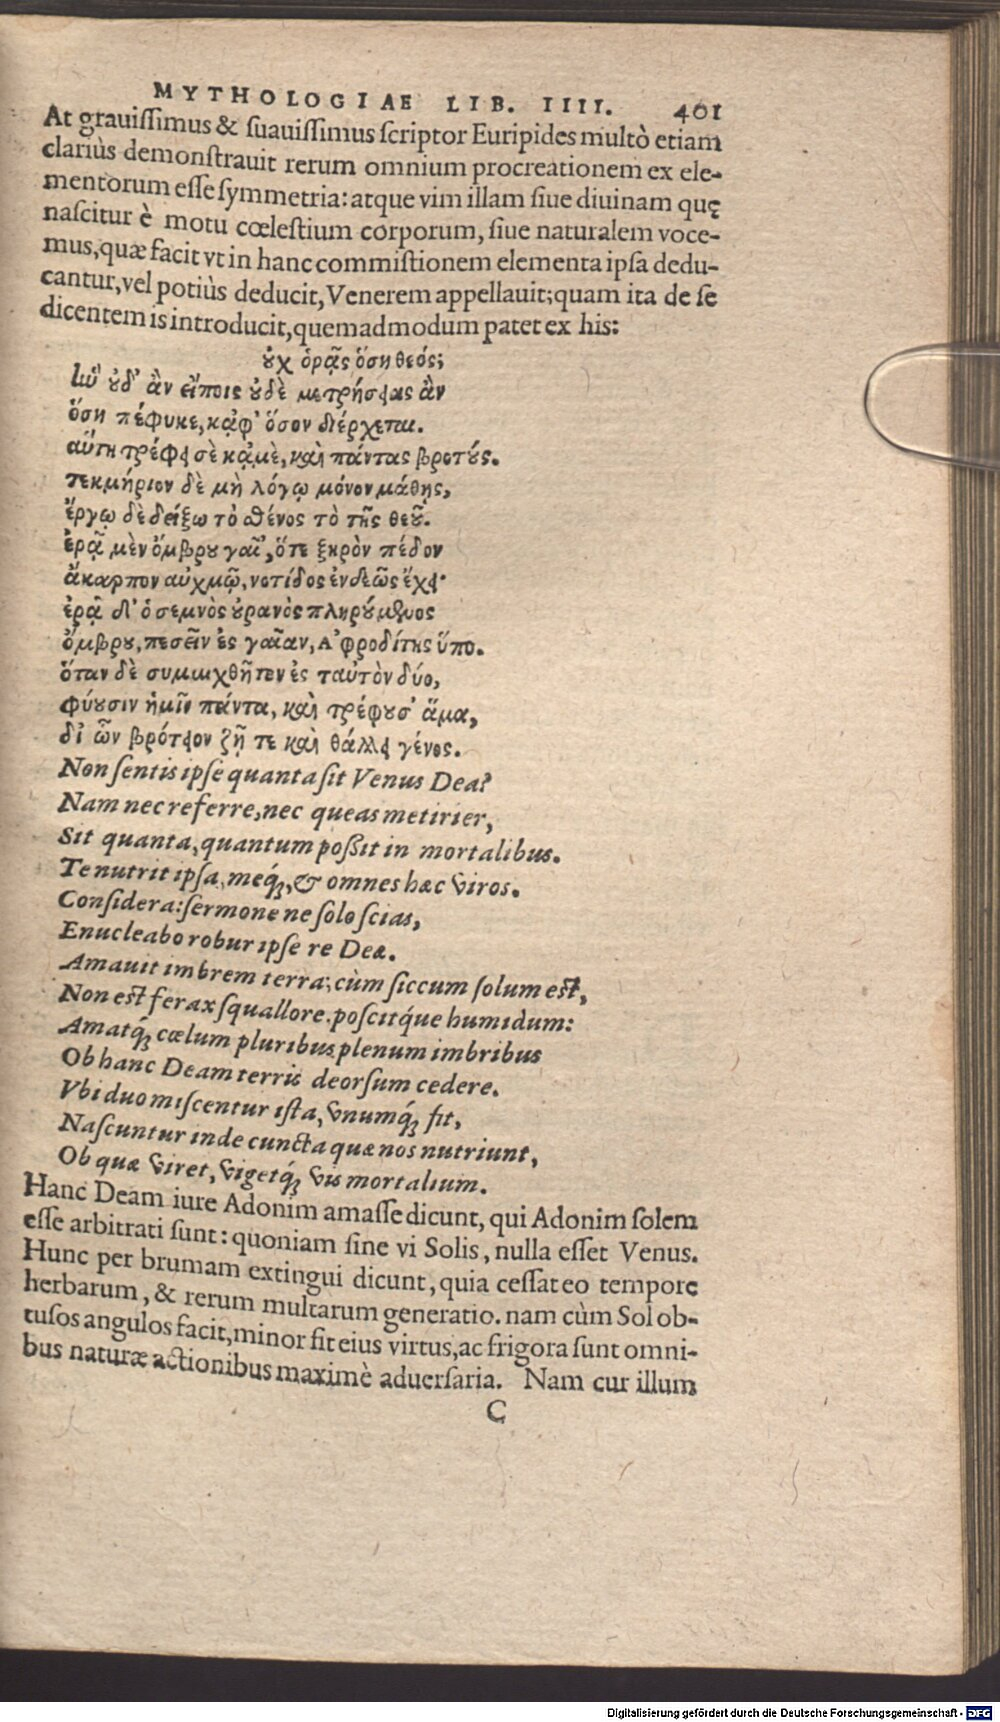 MYTHOLOGIAE LIB. IIII. 401
At grauiſſimus & ſuauiſſimus ſcriptor Euripides multò etiam
clariùs demonſtrauit rerum omnium procreationem ex ele-
mentorum eſſe ſymmetria: atque vim illam ſiue diuinam quę
naſcitur è motu cœleſtium corporum, ſiue naturalem voce-
mus, quæ facit vt in hanc commiſtionem elementa ipſa dedu-
cantur, vel potiùs deducit, Venerem appellauit; quam ita de ſe
dicentem is introducit, quemadmodum patet ex his:
ȣχ ὁρᾷς ὅση θεός;
ἣν ȣδ' ἂν εἴποις ȣδὲ μετρήσειας ἂν
ὅση πέφυκε, κᾀφ' ὅσον διέρχεται.
αὕτη τρέφει σὲ κᾀμὲ, καὶ πάντας βροτȣ́ς.
τεκμήριον δὲ μὴ λόγῳ μόνον μάθῃς,
ἔργῳ δὲ δείξω τὸ σθένος τὸ τῆς θεȣ͂.
ἐρᾷ μὲν ὄμβρȣ γαῖ', ὅτε ξηρὸν πέδον
ἄκαρπον αὐχμῷ, νοτίδος ἐνδεῶς ἔχει·
ἐρᾷ δ' ὁ σεμνὸς ȣρανὸς πληρȣ́μενος
ὄμβρȣ, πεσεῖν ἐς γαῖαν, Ἀφροδίτης ὕπο.
ὅταν δὲ συμμιχθῆτον ἐς ταὐτὸν δύο,
φύȣσιν ἡμῖν πάντα, καὶ τρέφȣσ' ἅμα,
δι' ὧν βρότειον ζῇ τε καὶ θάλλει γένος.
Non ſentis ipſe quanta ſit Venus Dea?
Nam nec referre, nec queas metirier,
Sit quanta, quantum poßit in mortalibus.
Te nutrit ipſa, meq́;, & omnes hæc viros.
Conſidera: ſermone ne ſolo ſcias,
Enucleabo robur ipſe re Deæ.
Amauit imbrem terra; cùm ſiccum ſolum eſt,
Non eſt ferax ſquallore. poſcitq́ue humidum:
Amatq́; cœlum pluribus plenum imbribus
Ob hanc Deam terris deorſum cedere.
Vbi duo miſcentur iſta, vnumq́; fit,
Naſcuntur inde cuncta quæ nos nutriunt,
Ob quæ viret, vigetq́; vis mortalium.
Hanc Deam iure Adonim amaſſe dicunt, qui Adonim ſolem
eſſe arbitrati ſunt: quoniam ſine vi Solis, nulla eſſet Venus.
Hunc per brumam extingui dicunt, quia ceſſat eo tempore
herbarum, & rerum multarum generatio. nam cùm Sol ob-
tuſos angulos facit, minor fit eius virtus, ac frigora ſunt omni-
bus naturæ actionibus maximè aduerſaria. Nam cur illum
C
Digitalisierung gefördert durch die Deutsche Forschungsgemeinschaft - DFG